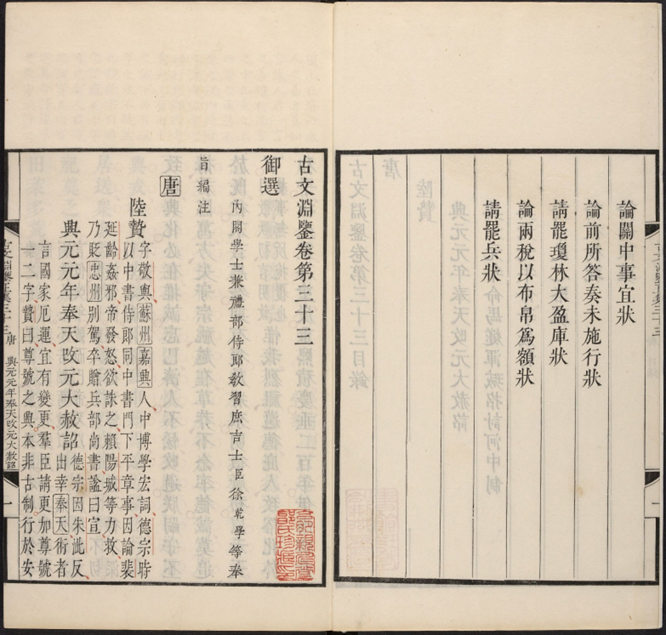 論關中事宜狀
論前所答奏未施行狀
請罷瓊林大盈庫狀
論兩稅以布帛爲額狀
請罷兵狀
古文淵鑒卷第三十三
御選
內閣學士兼禮部侍郎教習庶吉士臣徐乾學等奉
旨編注
唐
陸贄
字敬輿蘇州嘉興人中博學宏詞德宗時
以中書侍郎同中書門下平章事因論裴
延齡姦邪帝發怒欲誅之賴陽城等力救
乃貶忠州別駕卒贈兵部尚書謚曰宣
興元元年奉天改元大赦詔
德宗因朱泚反
出幸奉天術者
言國家厄運宜有變更羣臣請更加尊號
一二字贄曰尊號之興本非古制行於安
唐 興元元年奉天改元大赦詔
一